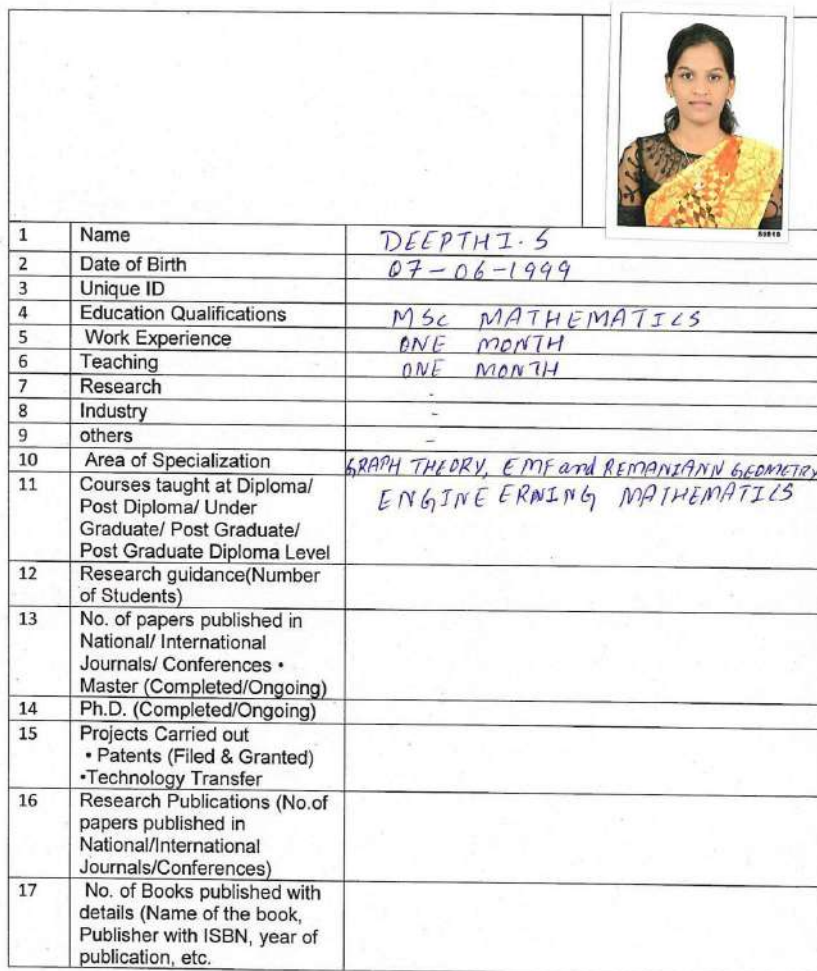 1 Name DEEPTHI. S
2 Date of Birth 07-06-1999
3 Unique ID
4 Education Qualifications MSc MATHEMATICS
5 Work Experience ONE MONTH
6 Teaching ONE MONTH
7 Research -
8 Industry -
9 others -
10 Area of Specialization GRAPH THEORY, EMF and REMANIANN GEOMETRY
11 Courses taught at Diploma/ ENGINEERNING MATHEMATICS
Post Diploma/ Under
Graduate/ Post Graduate/
Post Graduate Diploma Level
12 Research guidance(Number
of Students)
13 No. of papers published in
National/ International
Journals/ Conferences •
Master (Completed/Ongoing)
14 Ph.D. (Completed/Ongoing)
15 Projects Carried out
• Patents (Filed & Granted)
•Technology Transfer
16 Research Publications (No.of
papers published in
National/International
Journals/Conferences)
17 No. of Books published with
details (Name of the book,
Publisher with ISBN, year of
publication, etc.